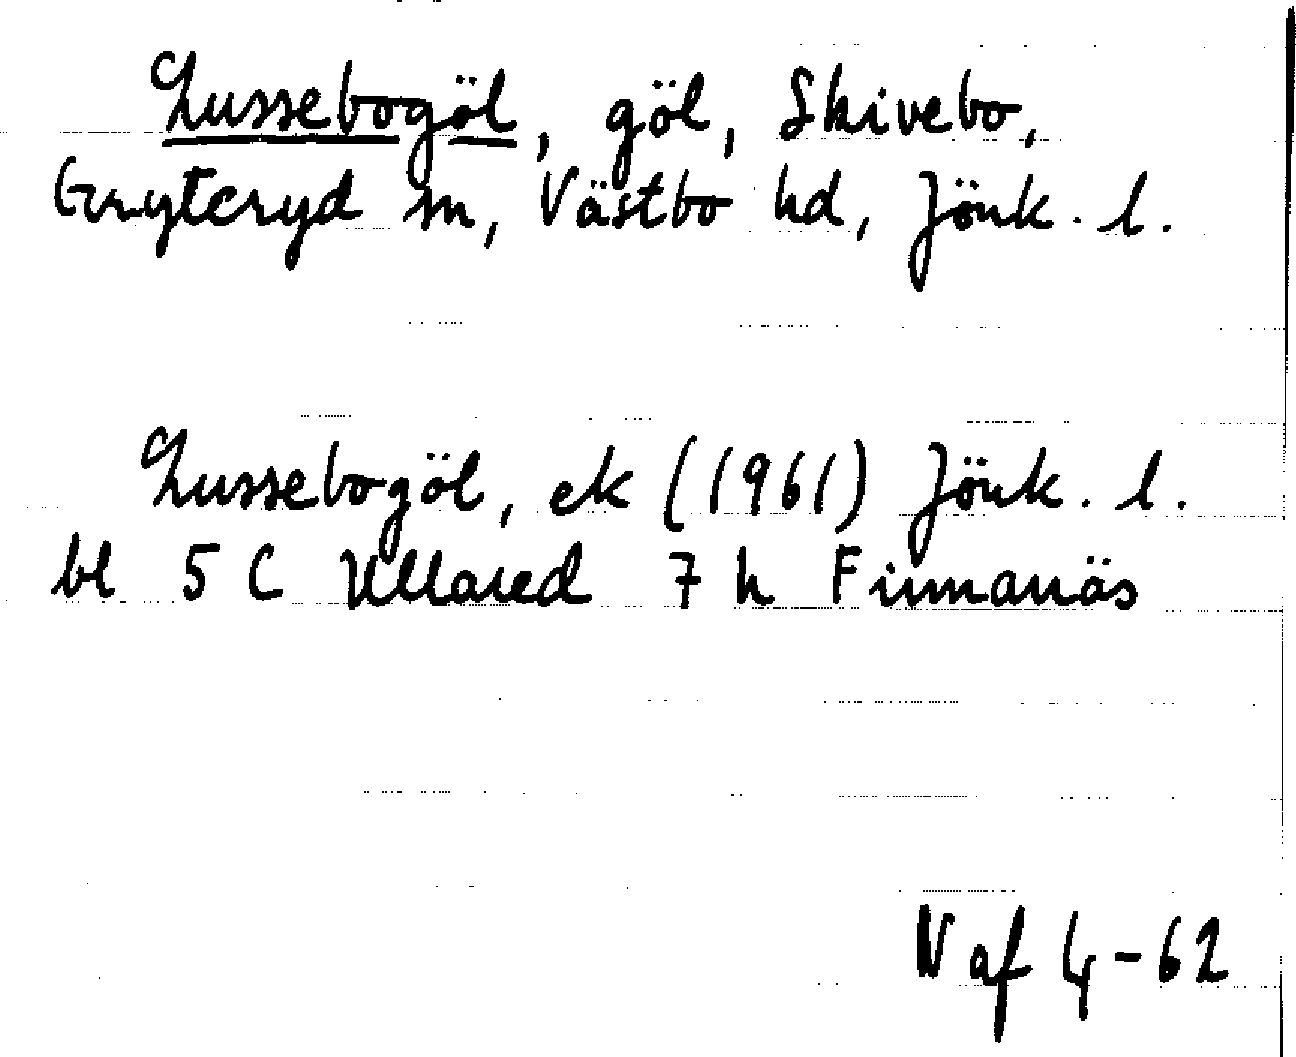 Lussebogöl, göl, Skivebo,
Gryteryd sn, Västbo hd, Jönk. l.
Lussebogöl, ek (1961) Jönk. l.
bl 5 C Ullared 7 h Finnanäs
Naf 4-62